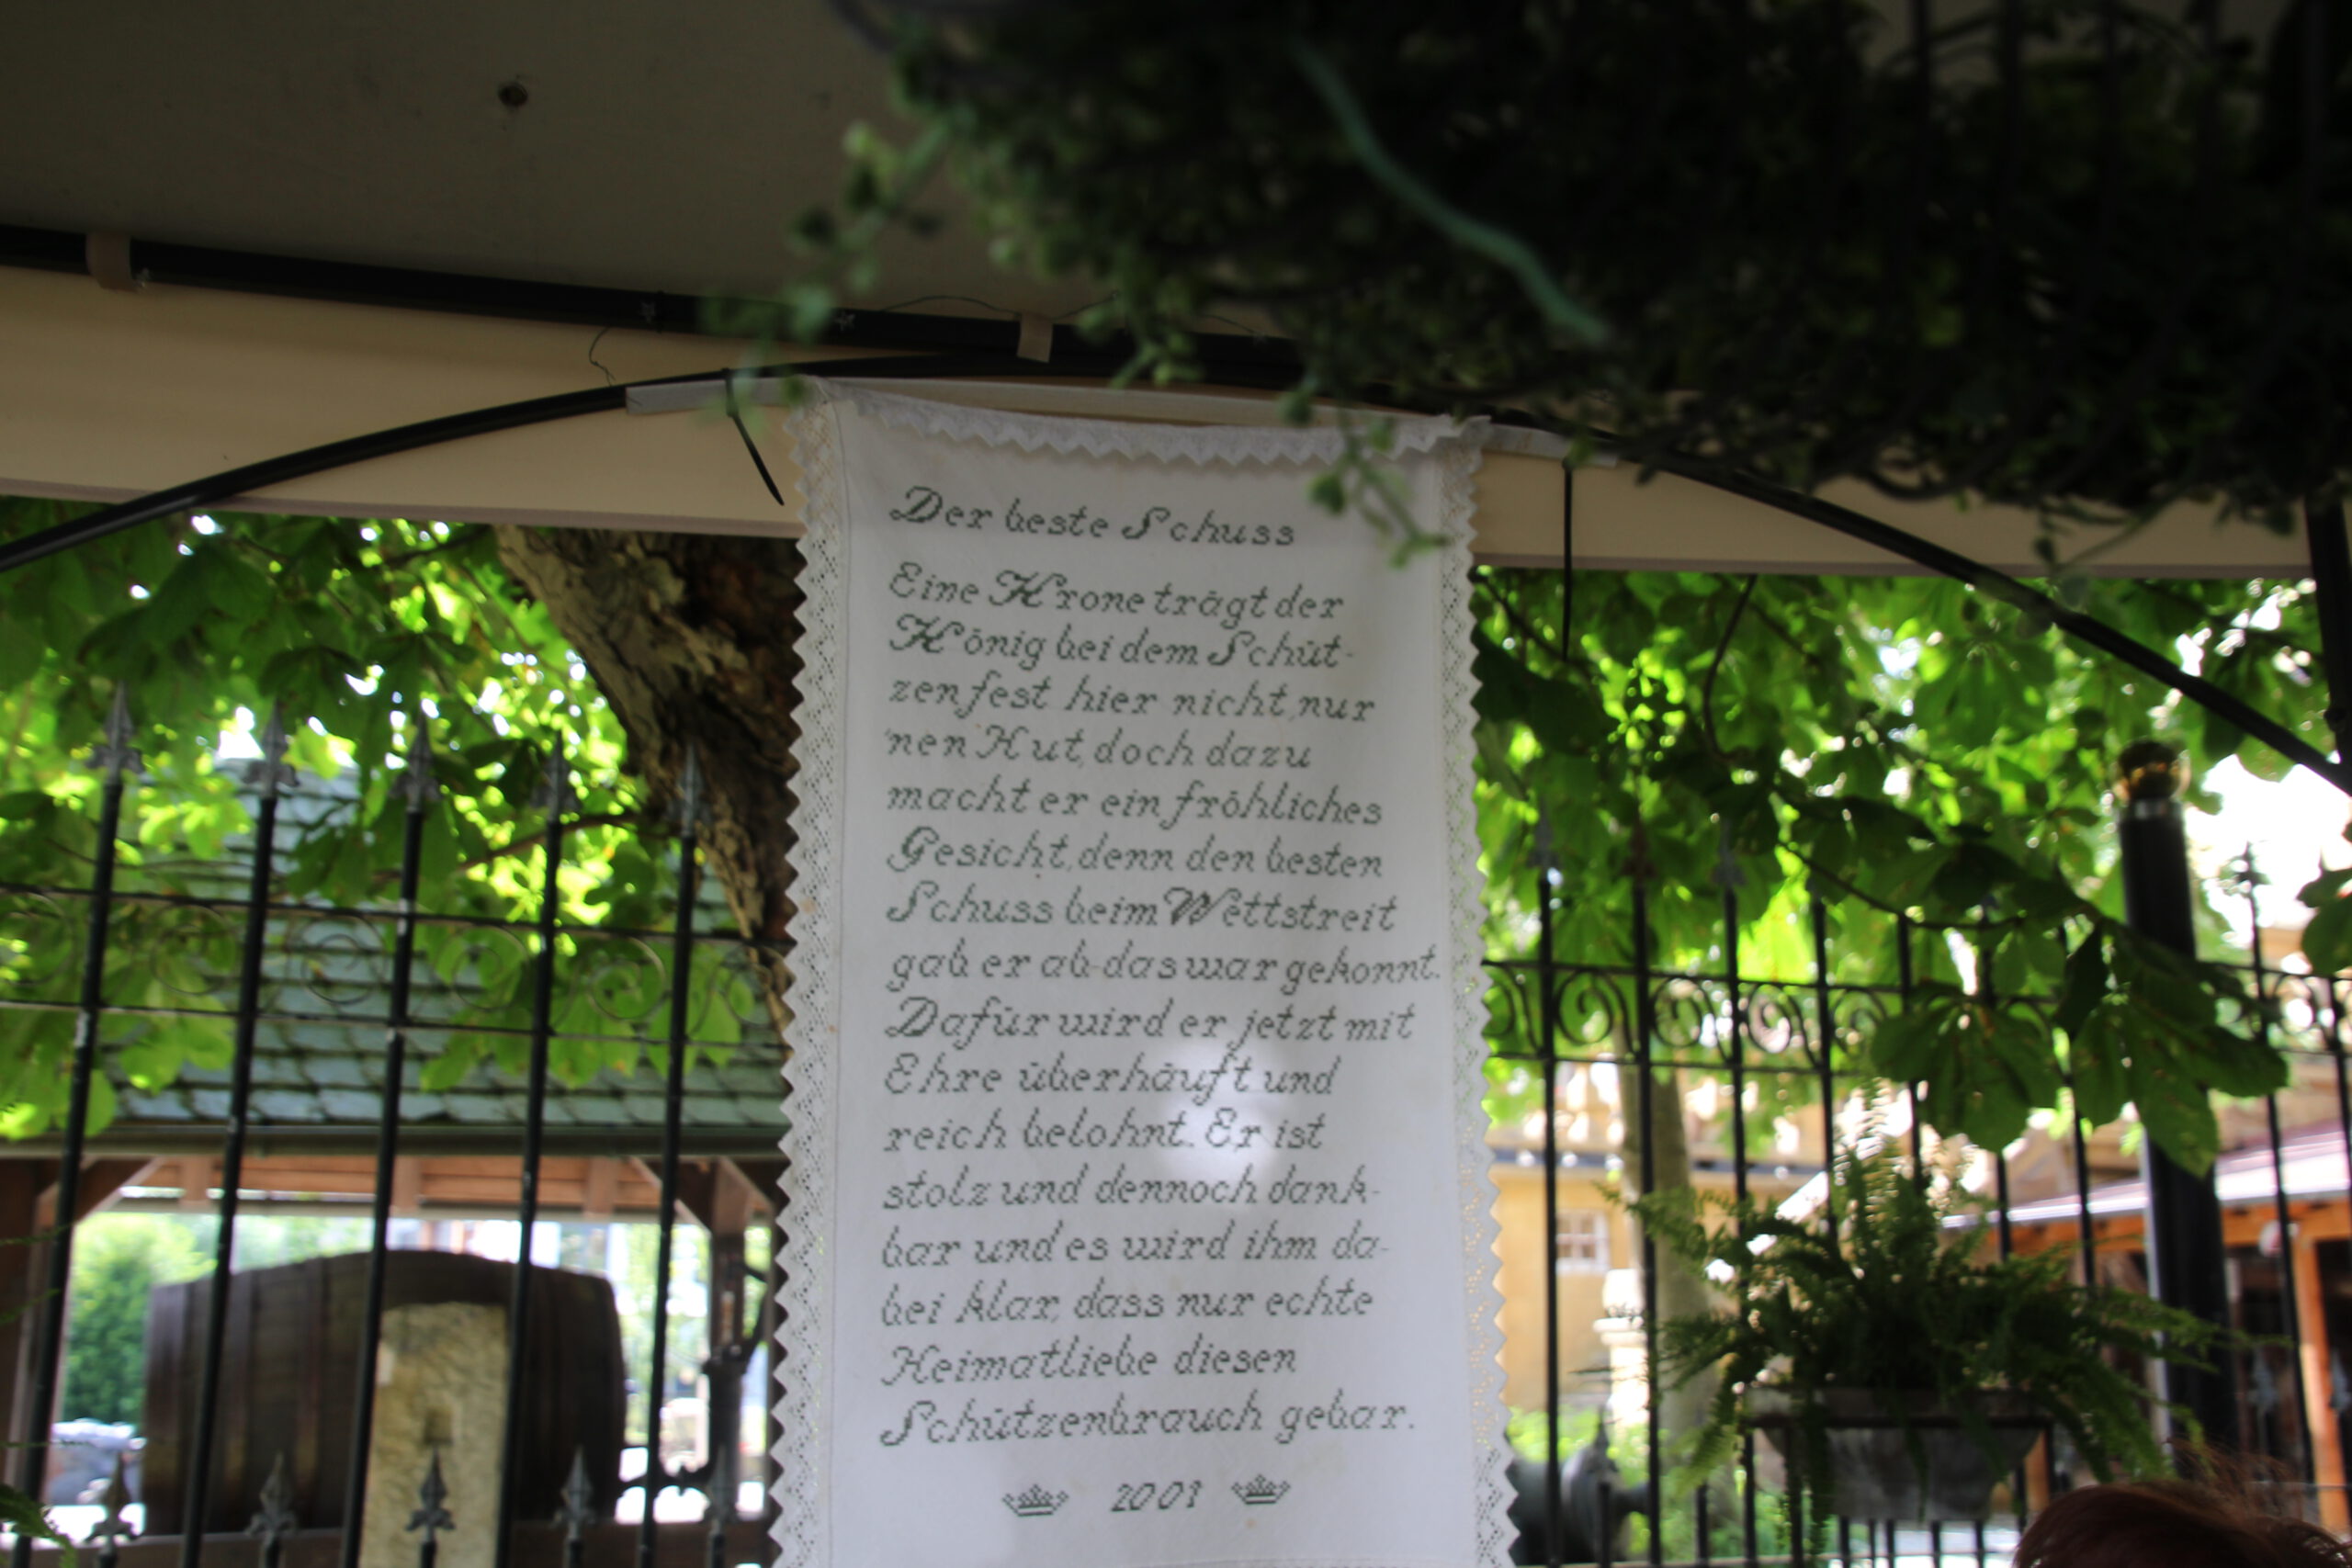 Der beste Schuss
Eine Krone trägt der
König bei dem Schüt-
zenfest hier nicht, nur
'nen Hut, doch dazu
macht er ein fröhliches
Gesicht, denn den besten
Schuss beim Wettstreit
gab er ab-das war gekonnt.
Dafür wird er jetzt mit
Ehre überhäuft und
reich belohnt. Er ist
stolz und dennoch dank-
bar und es wird ihm da-
bei klar, dass nur echte
Heimatliebe diesen
Schützenbrauch gebar.
2001